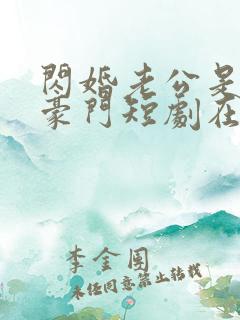 閃婚老公是
豪門短劇在
李金圓
未經同意禁止轉載